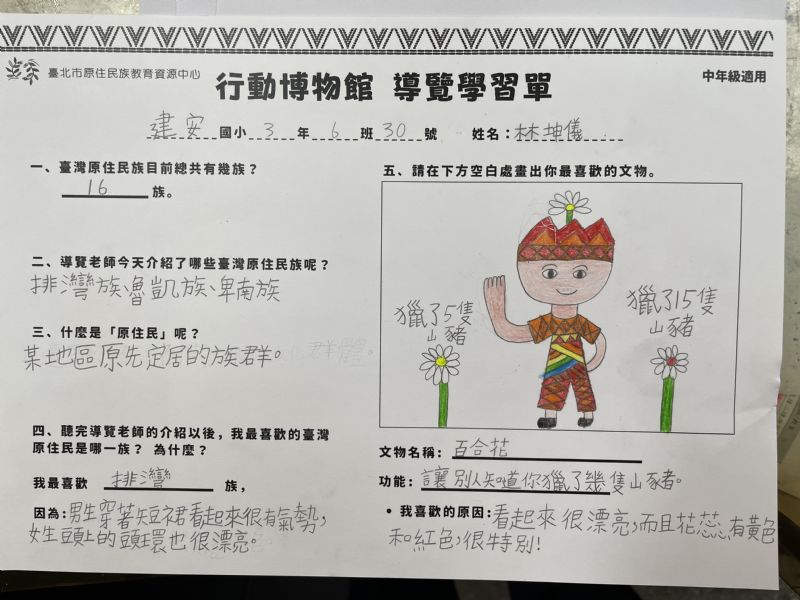 臺北市原住民族教育資源中心
行動博物館 導覽學習單
中年級適用
建安 國小 3 年 6 班 30 號 姓名：林坤儀
一、臺灣原住民族目前總共有幾族？
16 族。
二、導覽老師今天介紹了哪些臺灣原住民族呢？
排灣族、魯凱族、卑南族
三、什麼是「原住民」呢？
某地區原先定居的族群。
四、聽完導覽老師的介紹以後，我最喜歡的臺灣
原住民是哪一族？ 為什麼？
我最喜歡 排灣 族，
因為：男生穿著短裙看起來很有氣勢，
女生頭上的頭環也很漂亮。
五、請在下方空白處畫出你最喜歡的文物。
獵了5隻
山豬
獵了15隻
山豬
文物名稱：百合花
功能：讓別人知道你獵了幾隻山豬。
• 我喜歡的原因：看起來很漂亮，而且花蕊有黃色
和紅色，很特別！